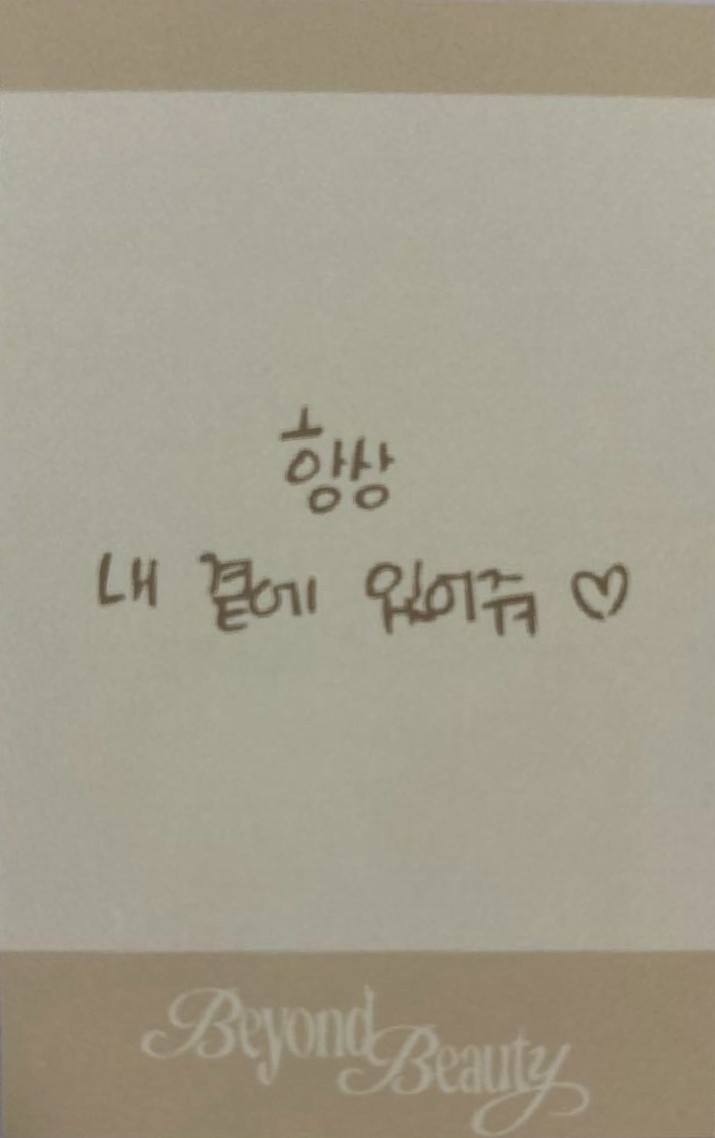 항상
내 곁에 있어줘 ♡
Beyond
Beauty